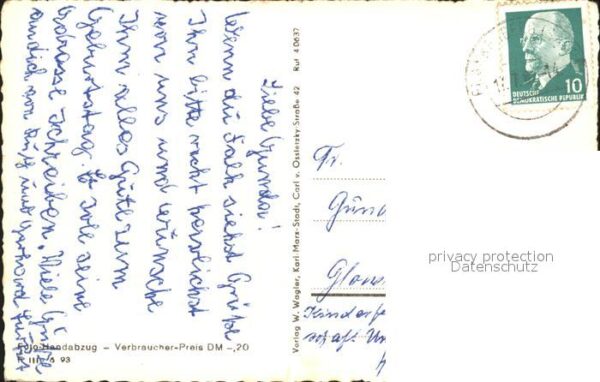 Liebe Gunda!
Wenn du Falk siehst Grüße
Ihn bitte recht herzlichst
von uns und wünsche
Ihm alles Gute zum
Geburtstag. Er soll seine
Adresse schreiben. Viele Grüße
auch
Foto-Handabzug – Verbraucher-Preis DM –,20
93
Verlag W. Wagler, Karl-Marx-Stadt, Carl v. Ossietzky-Straße 42 Ruf 40637
DEUTSCHE
DEMOKRATISCHE REPUBLIK
10
Fr.
Gün
Glow
Kinderfe
schaft Un
privacy protection
Datenschutz